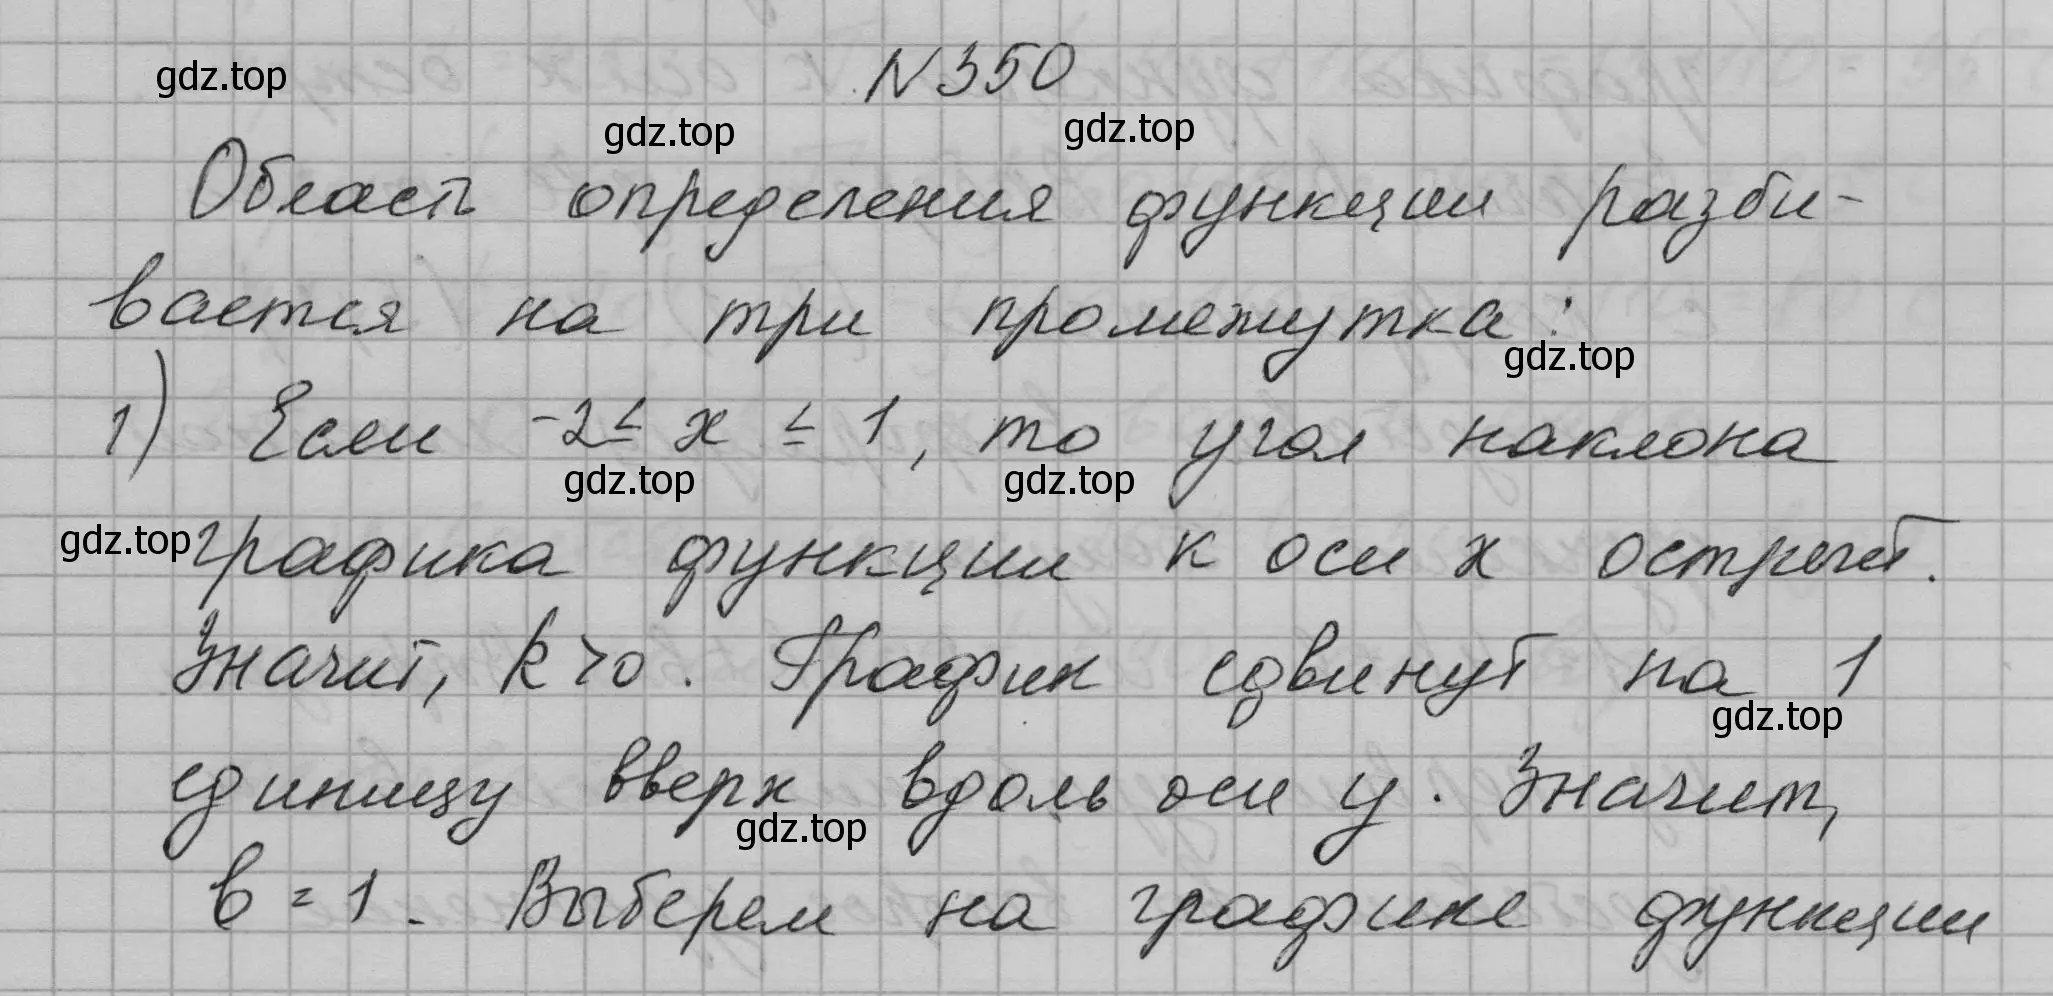 N350
Область определения функции разби-
вается на три промежутка:
1) Если -2 ≤ x ≤ 1, то угол наклона
графика функции к оси x острый.
Значит, k>0. График сдвинут на 1
единицу вверх вдоль оси y. Значит,
b = 1. Выберем на графике функции
gdz.top
gdz.top
gdz.top
gdz.top
gdz.top
gdz.top
gdz.top
gdz.top
gdz.top